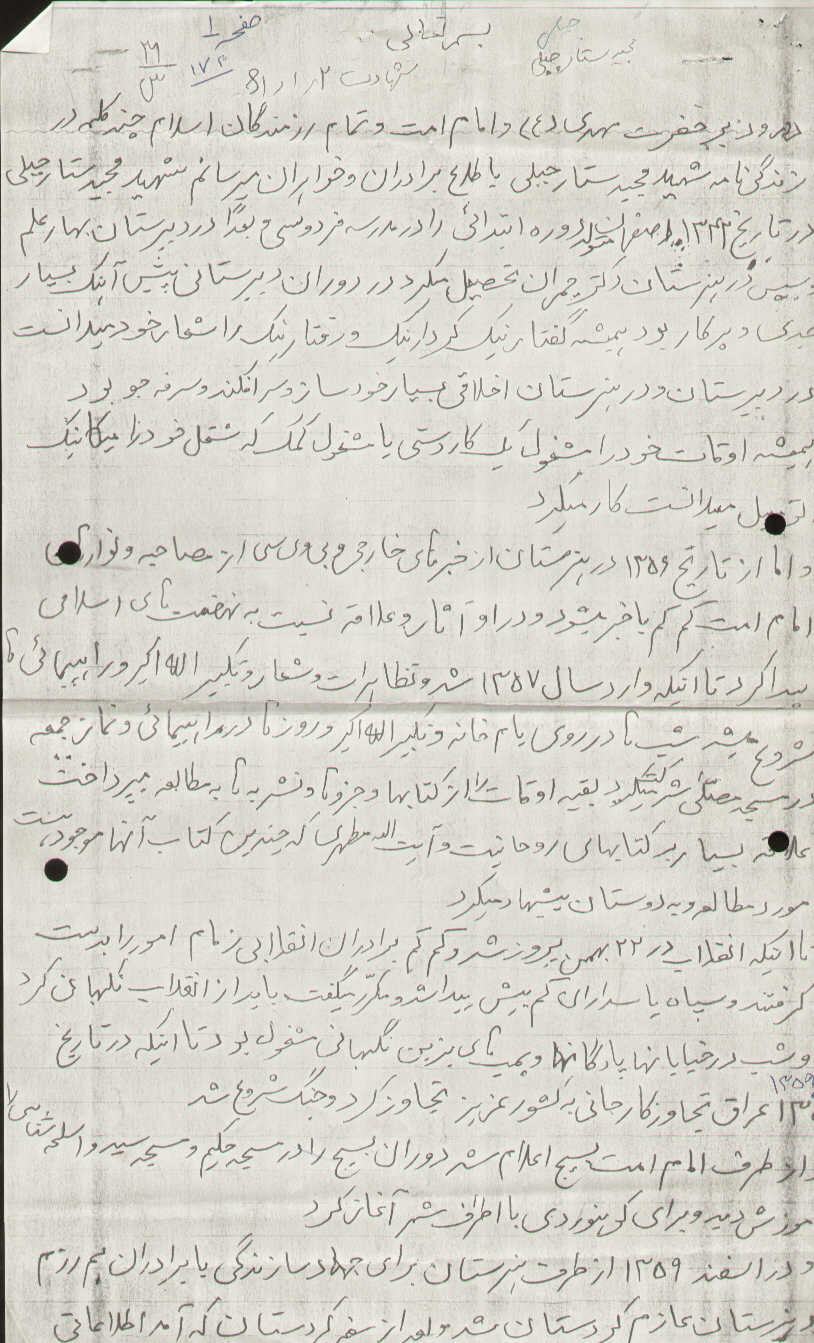 بسمه تعالی
صفحه ۱
مجید ستار جبلی
درود بر حضرت مهدی (ع) و امام امت و تمام رزمندگان اسلام چند کلمه در
زندگی نامه شهید مجید ستار جبلی باطلاع برادران و خواهران میرسانم شهید مجید ستار جبلی
در تاریخ ۱۳۴۳ اصفهان متولد دوره ابتدائی را در مدرسه فردوسی و بعداً در دبیرستان بهار علم
و سپس در هنرستان دکتر چمران تحصیل میکرد در دوران دبیرستانی پیش آهنگ بسیار
جدی و پرکار بود همیشه گفتار نیک کردار نیک و رفتار نیک را شعار خود میدانست
در دبیرستان و در هنرستان اخلاقی بسیار خودساز و سرافکنده و صرفه جو بود
همیشه اوقات خود را مشغول یک کار دستی یا مشغول کمک که شغل خود را میکانیک
میدانست کار میکرد
و اما از تاریخ ۱۳۵۶ در هنرستان از خبرهای خارجی و بی وی سی از مصاحبه و نوارهای
امام امت کم کم باخبر میشود و در او آثار و علاقه نسبت به نهضت های اسلامی
پیدا کرد تا اینکه وارد سال ۱۳۵۷ شد و تظاهرات و شعار و تکبیر الله اکبر و راهپیمائی ها
شروع شد شب ها در روی بام خانه و تکبیر الله اکبر و روزها در راهپیمائی و نماز جمعه
در مسجد مصلی شرکت میکرد بقیه اوقات را از کتابها و جزوه ها و نشریه ها به مطالعه میپرداخت
علاقه بسیار بر کتابهای روحانیت و آیت الله مطهری که چندین کتاب آنها موجود هست
مورد مطالعه و به دوستان پیشنهاد میکرد
تا اینکه انقلاب در ۲۲ بهمن پیروز شد و کم کم برادران انقلابی زمام امور را بدست
گرفتند و سپاه پاسدارای کم بیش پیدا شد و مکرر میگفت باید از انقلاب نگهبانی کرد
و شب در خیابانها پادگانها و پمپ های بنزین نگهبانی مشغول بود تا اینکه در تاریخ
۱۳۵۹
عراق تجاوزکار جانی به کشور عزیز تجاوز کرد و جنگ شروع شد
و از طرف امام امت بسیج اعلام شد دوران بسیج را در مسجد حکیم و مسجد سید و اسلحه شناسی را
آموزش دید و برای کوهنوردی با اطراف شهر آغاز کرد
و در اسفند ۱۳۵۹ از طرف هنرستان برای جهاد سازندگی با برادران هم رزم
هنرستان عازم کردستان شد و بعد از سفر کردستان که آمد اطلاعاتی